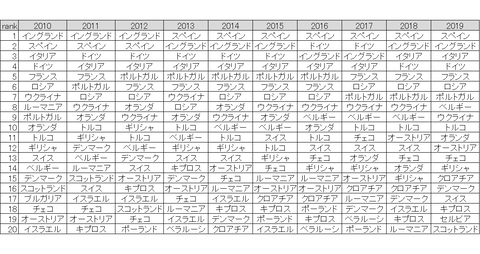 rank 2010 2011 2012 2013 2014 2015 2016 2017 2018 2019
1 イングランド イングランド イングランド スペイン スペイン スペイン スペイン スペイン スペイン スペイン
2 スペイン スペイン スペイン イングランド イングランド イングランド ドイツ ドイツ イングランド イングランド
3 イタリア ドイツ ドイツ ドイツ ドイツ ドイツ イングランド イングランド イタリア イタリア
4 ドイツ イタリア イタリア イタリア イタリア イタリア イタリア イタリア ドイツ ドイツ
5 フランス フランス フランス ポルトガル ポルトガル ポルトガル ポルトガル フランス フランス フランス
6 ロシア ポルトガル ポルトガル フランス フランス フランス フランス ロシア ロシア ロシア
7 ウクライナ ロシア ロシア ウクライナ ロシア ロシア ロシア ポルトガル ポルトガル ポルトガル
8 ルーマニア ウクライナ オランダ ロシア オランダ ウクライナ ウクライナ ウクライナ ウクライナ ベルギー
9 ポルトガル オランダ ウクライナ オランダ ウクライナ オランダ ベルギー ベルギー ベルギー ウクライナ
10 オランダ トルコ ギリシャ トルコ ベルギー ベルギー オランダ トルコ トルコ トルコ
11 トルコ ギリシャ トルコ ベルギー トルコ スイス トルコ チェコ オーストリア オランダ
12 ギリシャ デンマーク ベルギー ギリシャ ギリシャ トルコ スイス スイス スイス オーストリア
13 スイス ベルギー デンマーク スイス スイス ギリシャ チェコ オランダ チェコ チェコ
14 ベルギー ルーマニア スイス キプロス オーストリア チェコ ギリシャ ギリシャ オランダ ギリシャ
15 デンマーク スコットランド オーストリア デンマーク チェコ ルーマニア ルーマニア オーストリア ギリシャ クロアチア
16 スコットランド スイス キプロス オーストリア ルーマニア オーストリア オーストリア クロアチア クロアチア デンマーク
17 ブルガリア イスラエル イスラエル チェコ イスラエル クロアチア クロアチア ルーマニア デンマーク スイス
18 チェコ チェコ スコットランド ルーマニア キプロス キプロス ポーランド デンマーク イスラエル キプロス
19 オーストリア オーストリア チェコ イスラエル デンマーク ポーランド キプロス ベラルーシ キプロス セルビア
20 イスラエル キプロス ポーランド ベラルーシ クロアチア イスラエル ベラルーシ ポーランド ルーマニア スコットランド